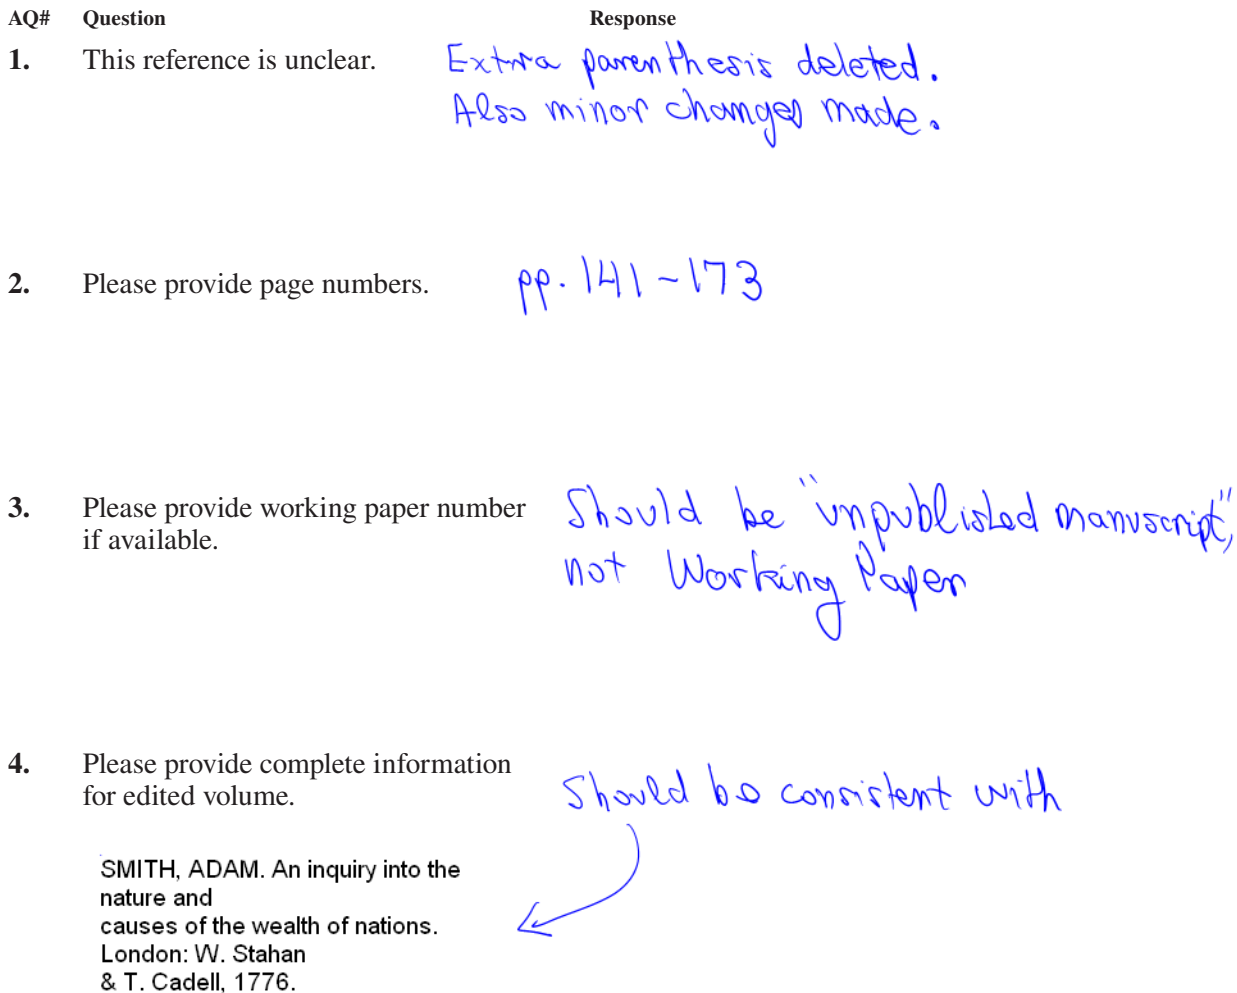 AQ# Question Response
1. This reference is unclear. Extra parenthesis deleted.
Also minor changes made.
2. Please provide page numbers. pp. 141-173
3. Please provide working paper number if available. Should be "unpublished manuscript",
not Working Paper
4. Please provide complete information
for edited volume. Should be consistent with
SMITH, ADAM. An inquiry into the
nature and
causes of the wealth of nations.
London: W. Stahan
& T. Cadell, 1776.